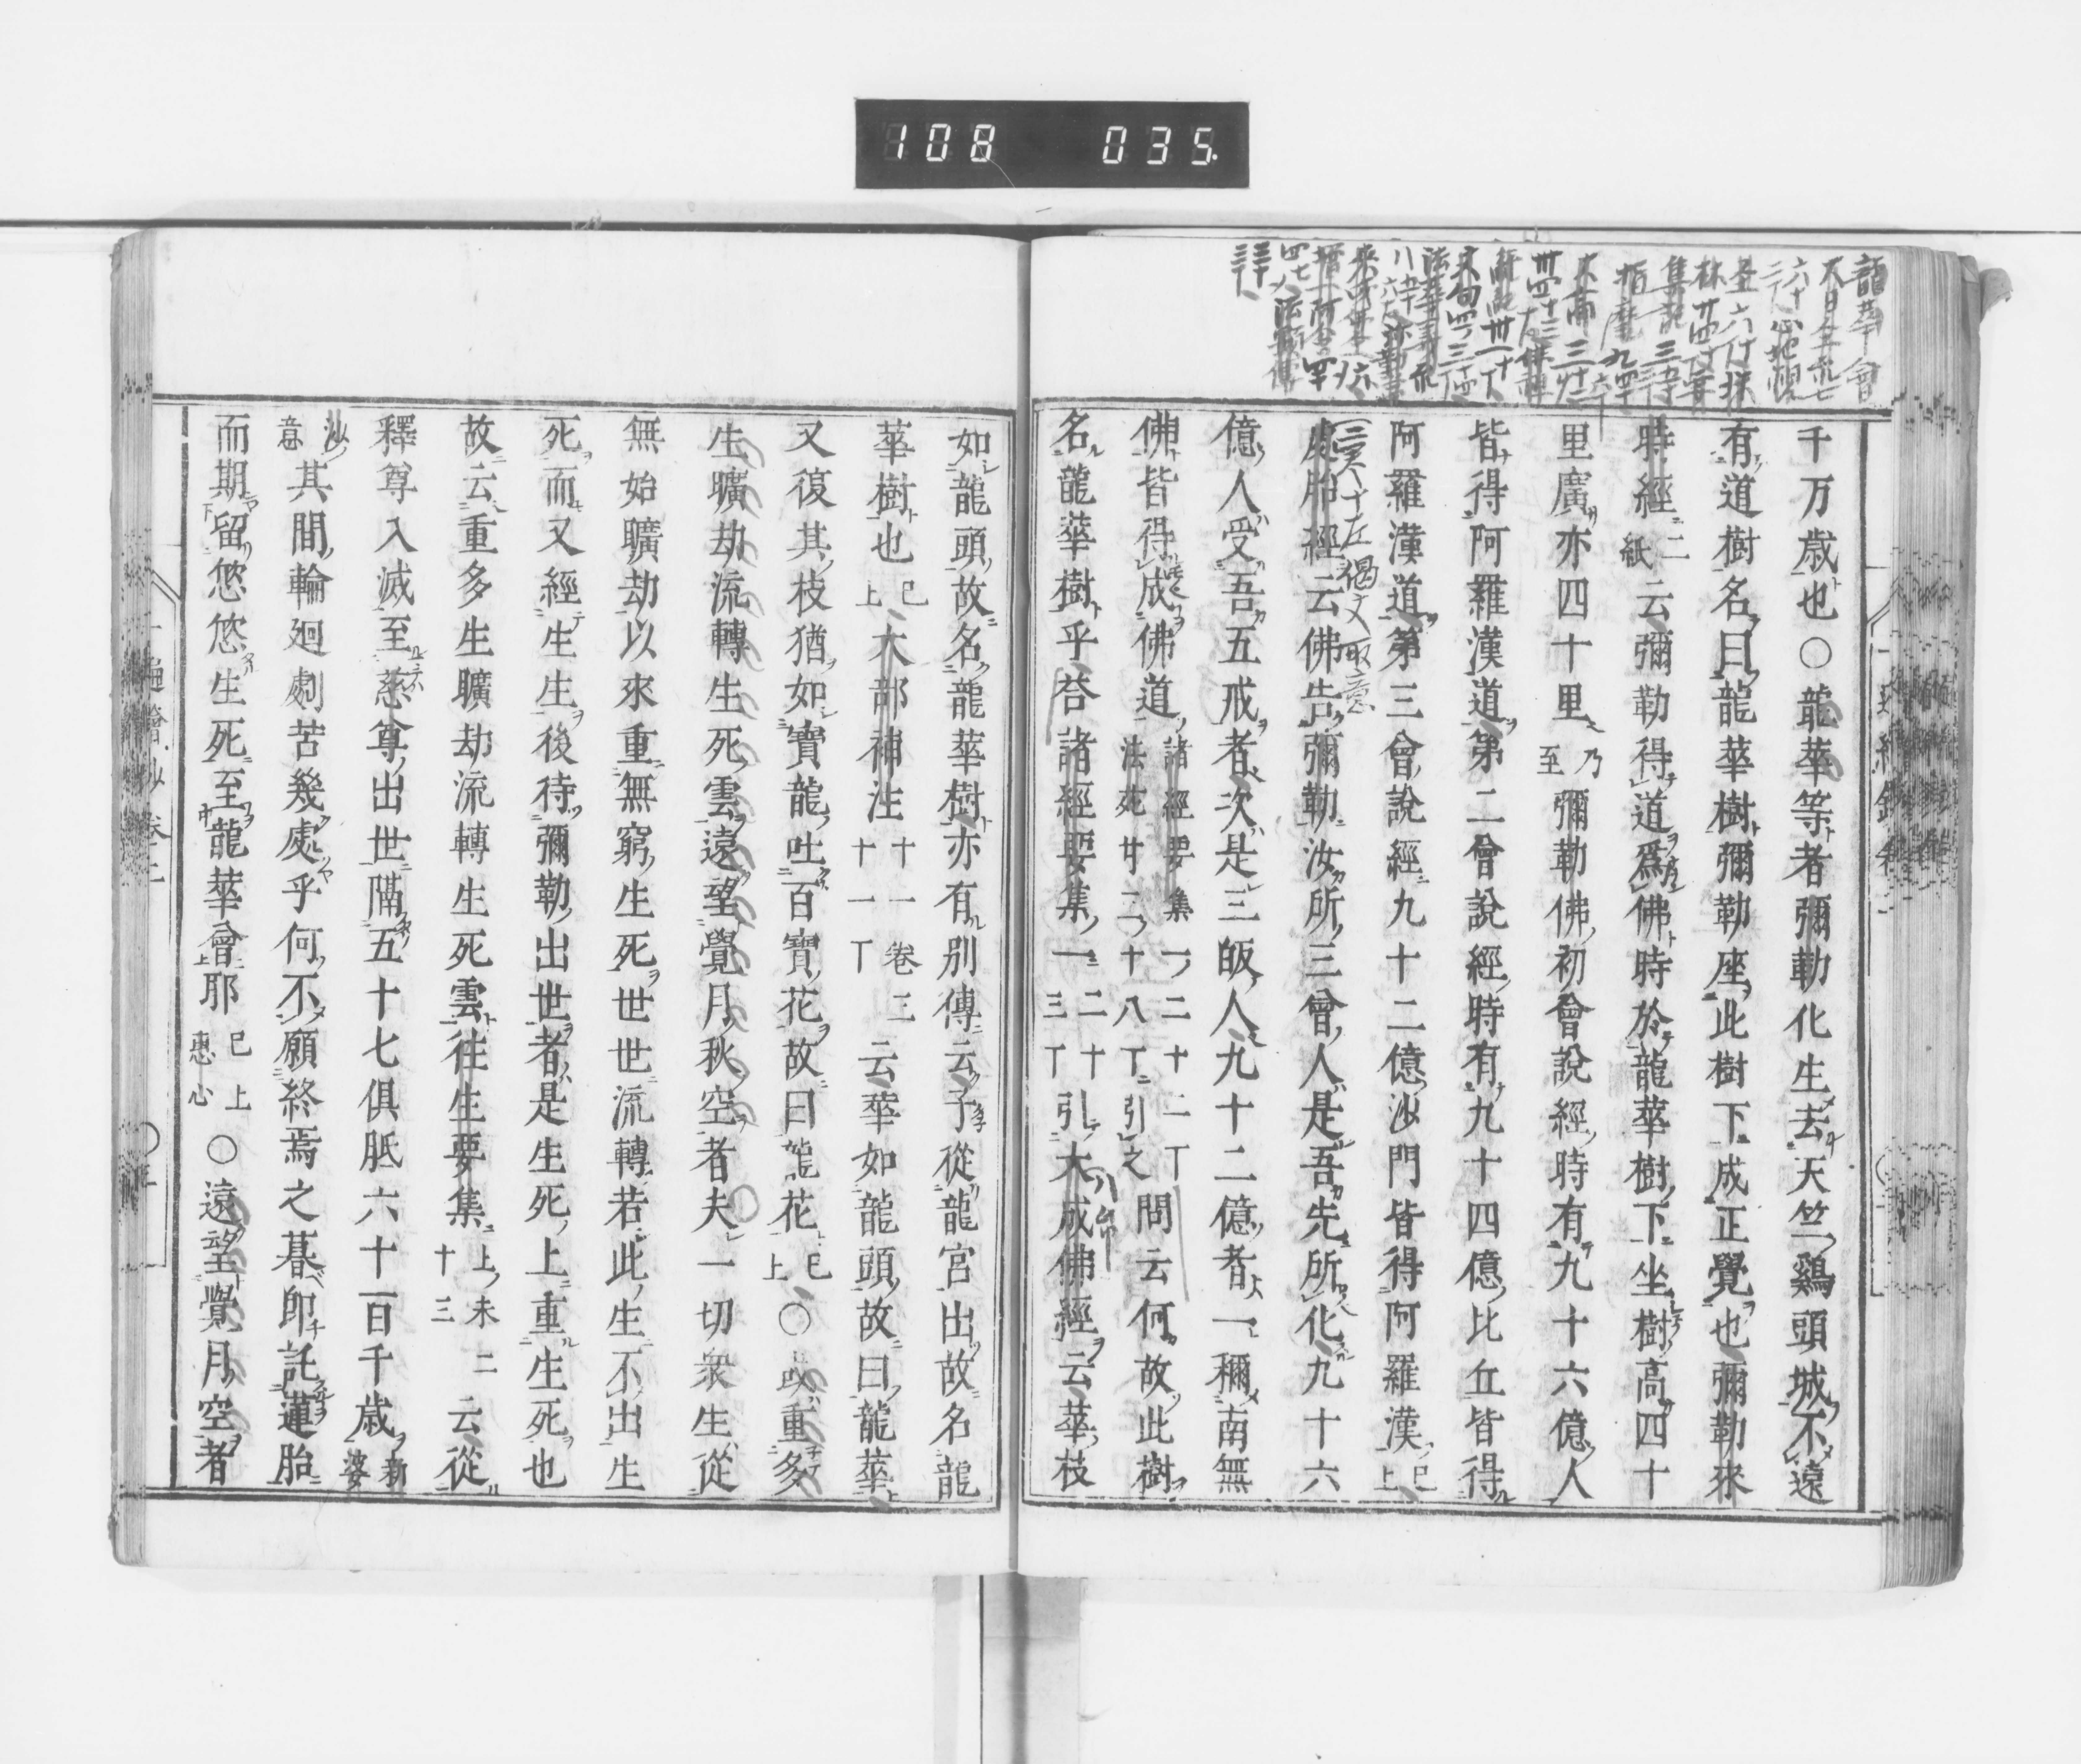 108 035
千万歳也○龍華等者彌勒化生去天竺鷄頭城不遠
有道樹名曰龍華樹彌勒座此樹下成正覺也彌勒來
時經二紙云彌勒得道爲佛時於龍華樹下坐樹高四十
里廣亦四十里乃至彌勒佛初會說經時有九十六億人
皆得阿羅漢道第二會說經時有九十四億比丘皆得
阿羅漢道第三會說經九十二億沙門皆得阿羅漢已上
處胎經云佛告彌勒汝所三會人是吾先所化九十六
億人受吾五戒者次是三皈人九十二億者一稱南無
佛皆得成佛道諸經要集一二十二丁法苑廿二十八丁引之問云何故此樹
名龍華樹乎答諸經要集一二十三丁引大成佛經云華枝
如龍頭故名龍華樹亦有別傳云子從龍宮出故名龍
華樹也已上大部補注十一十一丁卷三云華如龍頭故曰龍華
又復其枝猶如寶龍吐百寶花故曰龍花已上○故重多
生曠劫流轉生死雲遠望覺月秋空者夫一切衆生從
無始曠劫以來重無窮生死世世流轉若此生不出生
死而又經生生後待彌勒出世者是生死上重生死也
故云重多生曠劫流轉生死雲往生要集上末二十三云從
釋尊入滅至慈尊出世隔五十七俱胝六十百千歳新婆
沙意其間輪廻劇苦幾處乎何不願終焉之暮卽託蓮胎
而期留悠悠生死至龍華會耶已上惠心○遠望覺月空者